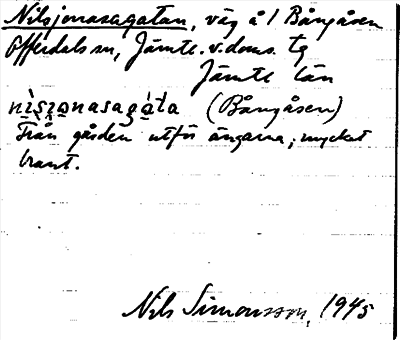 Nilsjonasagatan, väg å 1 Bångåsen
Offerdals sn, Jämtl. v. doms. tg
Jämtl. län
nìsjonasagáta (Bångåsen)
Från gården utför ängarna, mycket
brant.
Nils Simonsson, 1945